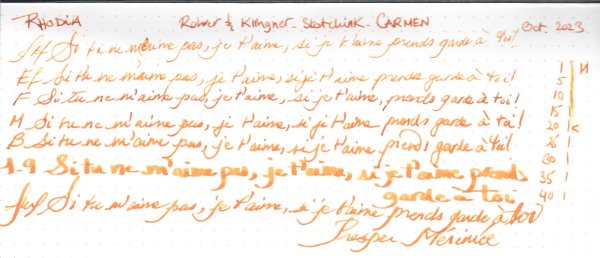 RHODIA Rohrer & Klingner - Sketchink - CARMEN Oct. 2023
Si tu ne m'aime pas, je t'aime, si je t'aime prends garde à toi!
EF Si tu ne m'aime pas, je t'aime, si je t'aime prends garde à toi!
F Si tu ne m'aime pas, je t'aime, si je t'aime, prends garde à toi!
M Si tu ne m'aime pas, je t'aime, si je t'aime prends garde à toi!
B Si tu ne m'aime pas, je t'aime, si je t'aime prends garde à toi!
1.9 Si tu ne m'aime pas, je t'aime, si je t'aime prends
garde a toi
Si tu ne m'aime pas, je t'aime, si je t'aime prends garde à toi
Prosper Mérimée
1
5
10
15
20
30
35
40